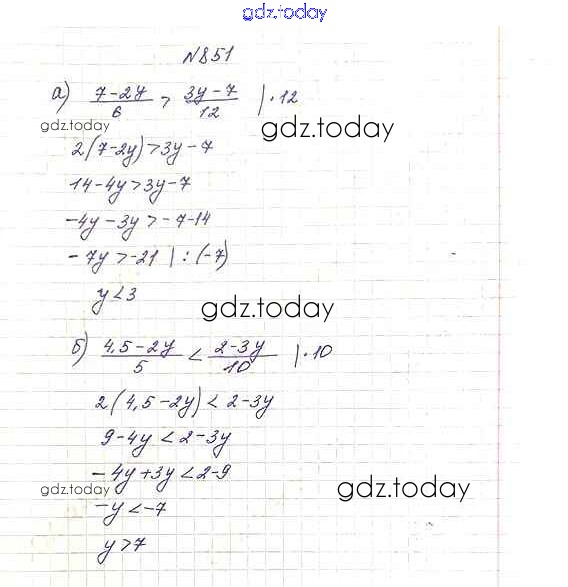 gdz.today
№851
а) (7-2y)/6 > (3y-7)/12 |·12
gdz.today
gdz.today
2(7-2y)>3y-7
14-4y>3y-7
-4y-3y>-7-14
-7y>-21 |:(-7)
y<3
gdz.today
б) (4,5-2y)/5 < (2-3y)/10 |·10
2(4,5-2y)<2-3y
9-4y<2-3y
-4y+3y<2-9
gdz.today
gdz.today
-y<-7
y>7